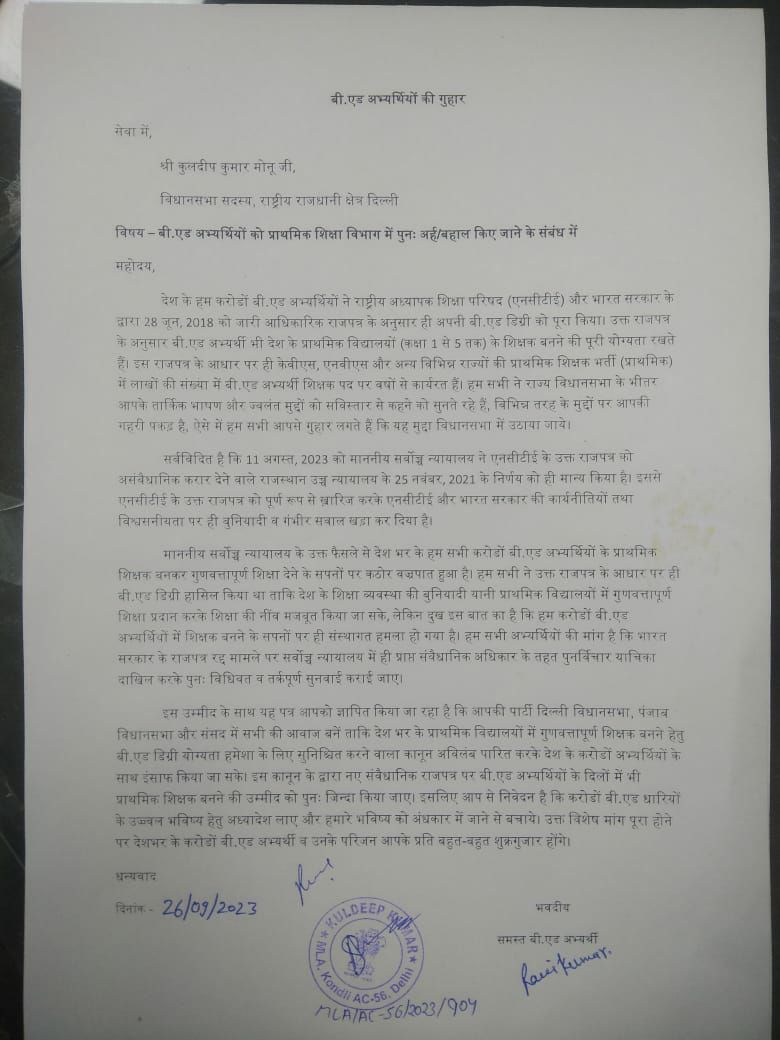 बी.एड अभ्यर्थियों की गुहार
सेवा में,
श्री कुलदीप कुमार मोनू जी,
विधानसभा सदस्य, राष्ट्रीय राजधानी क्षेत्र दिल्ली
विषय – बी.एड अभ्यर्थियों को प्राथमिक शिक्षा विभाग में पुनः अर्ह/बहाल किए जाने के संबंध में
महोदय,
देश के हम करोडों बी.एड अभ्यर्थियों ने राष्ट्रीय अध्यापक शिक्षा परिषद (एनसीटीई) और भारत सरकार के
द्वारा 28 जून, 2018 को जारी आधिकारिक राजपत्र के अनुसार ही अपनी बी.एड डिग्री को पूरा किया। उक्त राजपत्र
के अनुसार बी.एड अभ्यर्थी भी देश के प्राथमिक विद्यालयों (कक्षा 1 से 5 तक) के शिक्षक बनने की पूरी योग्यता रखते
हैं। इस राजपत्र के आधार पर ही केवीएस, एनवीएस और अन्य विभिन्न राज्यों की प्राथमिक शिक्षक भर्ती (प्राथमिक)
में लाखों की संख्या में बी.एड अभ्यर्थी शिक्षक पद पर वर्षो से कार्यरत हैं। हम सभी ने राज्य विधानसभा के भीतर
आपके तार्किक भाषण और ज्वलंत मुद्दों को सविस्तार से कहने को सुनते रहे हैं, विभिन्न तरह के मुद्दों पर आपकी
गहरी पकड़ है, ऐसे में हम सभी आपसे गुहार लगते हैं कि यह मुद्दा विधानसभा में उठाया जाये।
सर्वविदित है कि 11 अगस्त, 2023 को माननीय सर्वोच्च न्यायालय ने एनसीटीई के उक्त राजपत्र को
असंवैधानिक करार देने वाले राजस्थान उच्च न्यायालय के 25 नवंबर, 2021 के निर्णय को ही मान्य किया है। इससे
एनसीटीई के उक्त राजपत्र को पूर्ण रूप से ख़ारिज करके एनसीटीई और भारत सरकार की कार्यनीतियों तथा
विश्वसनीयता पर ही बुनियादी व गंभीर सवाल खड़ा कर दिया है।
माननीय सर्वोच्च न्यायालय के उक्त फैसले से देश भर के हम सभी करोडों बी.एड अभ्यर्थियों के प्राथमिक
शिक्षक बनकर गुणवत्तापूर्ण शिक्षा देने के सपनों पर कठोर वज्रपात हुआ है। हम सभी ने उक्त राजपत्र के आधार पर ही
बी.एड डिग्री हासिल किया था ताकि देश के शिक्षा व्यवस्था की बुनियादी यानी प्राथमिक विद्यालयों में गुणवत्तापूर्ण
शिक्षा प्रदान करके शिक्षा की नींव मजबूत किया जा सके, लेकिन दुख इस बात का है कि हम करोडों बी.एड
अभ्यर्थियों में शिक्षक बनने के सपनों पर ही संस्थागत हमला हो गया है। हम सभी अभ्यर्थियों की मांग है कि भारत
सरकार के राजपत्र रद्द मामले पर सर्वोच्च न्यायालय में ही प्राप्त संवैधानिक अधिकार के तहत पुनर्विचार याचिका
दाखिल करके पुनः विधिवत व तर्कपूर्ण सुनवाई कराई जाए।
इस उम्मीद के साथ यह पत्र आपको ज्ञापित किया जा रहा है कि आपकी पार्टी दिल्ली विधानसभा, पंजाब
विधानसभा और संसद में सभी की आवाज बनें ताकि देश भर के प्राथमिक विद्यालयों में गुणवत्तापूर्ण शिक्षक बनने हेतु
बी.एड डिग्री योग्यता हमेशा के लिए सुनिश्चित करने वाला कानून अविलंब पारित करके देश के करोडों अभ्यर्थियों के
साथ इंसाफ किया जा सके। इस कानून के द्वारा नए संवैधानिक राजपत्र पर बी.एड अभ्यर्थियों के दिलों में भी
प्राथमिक शिक्षक बनने की उम्मीद को पुनः जिन्दा किया जाए। इसलिए आप से निवेदन है कि करोडों बी.एड धारियों
के उज्ज्वल भविष्य हेतु अध्यादेश लाए और हमारे भविष्य को अंधकार में जाने से बचाये। उक्त विशेष मांग पूरा होने
पर देशभर के करोडों बी.एड अभ्यर्थी व उनके परिजन आपके प्रति बहुत-बहुत शुक्रगुजार होंगे।
धन्यवाद
दिनांक - 26/09/2023
भवदीय
समस्त बी.एड अभ्यर्थी
Ravi Kumar.
KULDEEP KUMAR
MLA, Kondli AC-56, Delhi
MLA/AC-56/2023/904